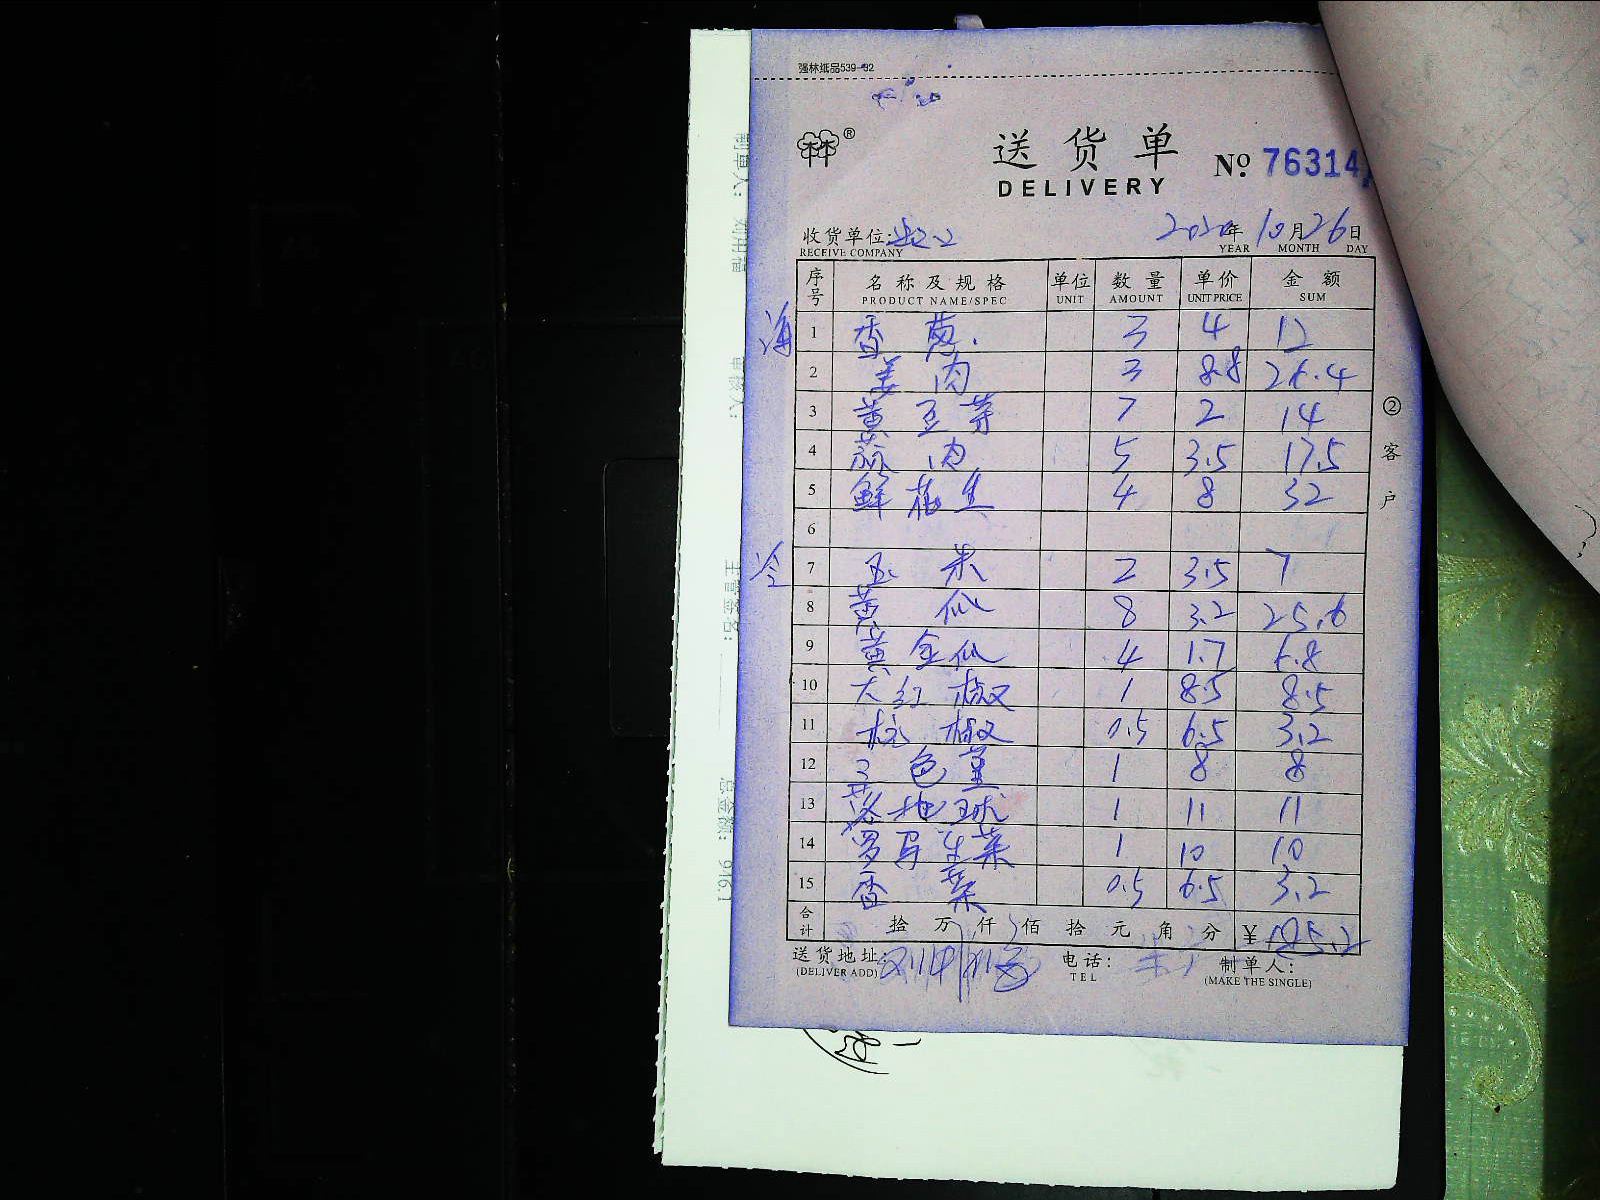 强林纸品539-32
送货单
DELIVERY
№ 76314
收货单位:
RECEIVE COMPANY
2020年10月26日
YEAR MONTH DAY
序号 名称及规格 单位 数量 单价 金额
PRODUCT NAME/SPEC UNIT AMOUNT UNIT PRICE SUM
海 1 香葱. 3 4 12
2 姜肉 3 8.8 26.4
3 黄豆芽 7 2 14
4 蒜肉 5 3.5 17.5
5 鲜花生 4 8 32
6
冷 7 玉米 2 3.5 7
8 黄瓜 8 3.2 25.6
9 黄金瓜 4 1.7 6.8
10 大红椒 1 8.5 8.5
11 杭椒 0.5 6.5 3.2
12 三色堇 1 8 8
13 落地球 1 11 11
14 罗马生菜 1 10 10
15 香菜 0.5 6.5 3.2
合计 拾万仟佰拾元角分 ¥185.2
②客户
送货地址:
(DELIVER ADD)
电话:
TEL
制单人:
(MAKE THE SINGLE)
制单人:
审核人:
主管签名:
总金额: 916.1